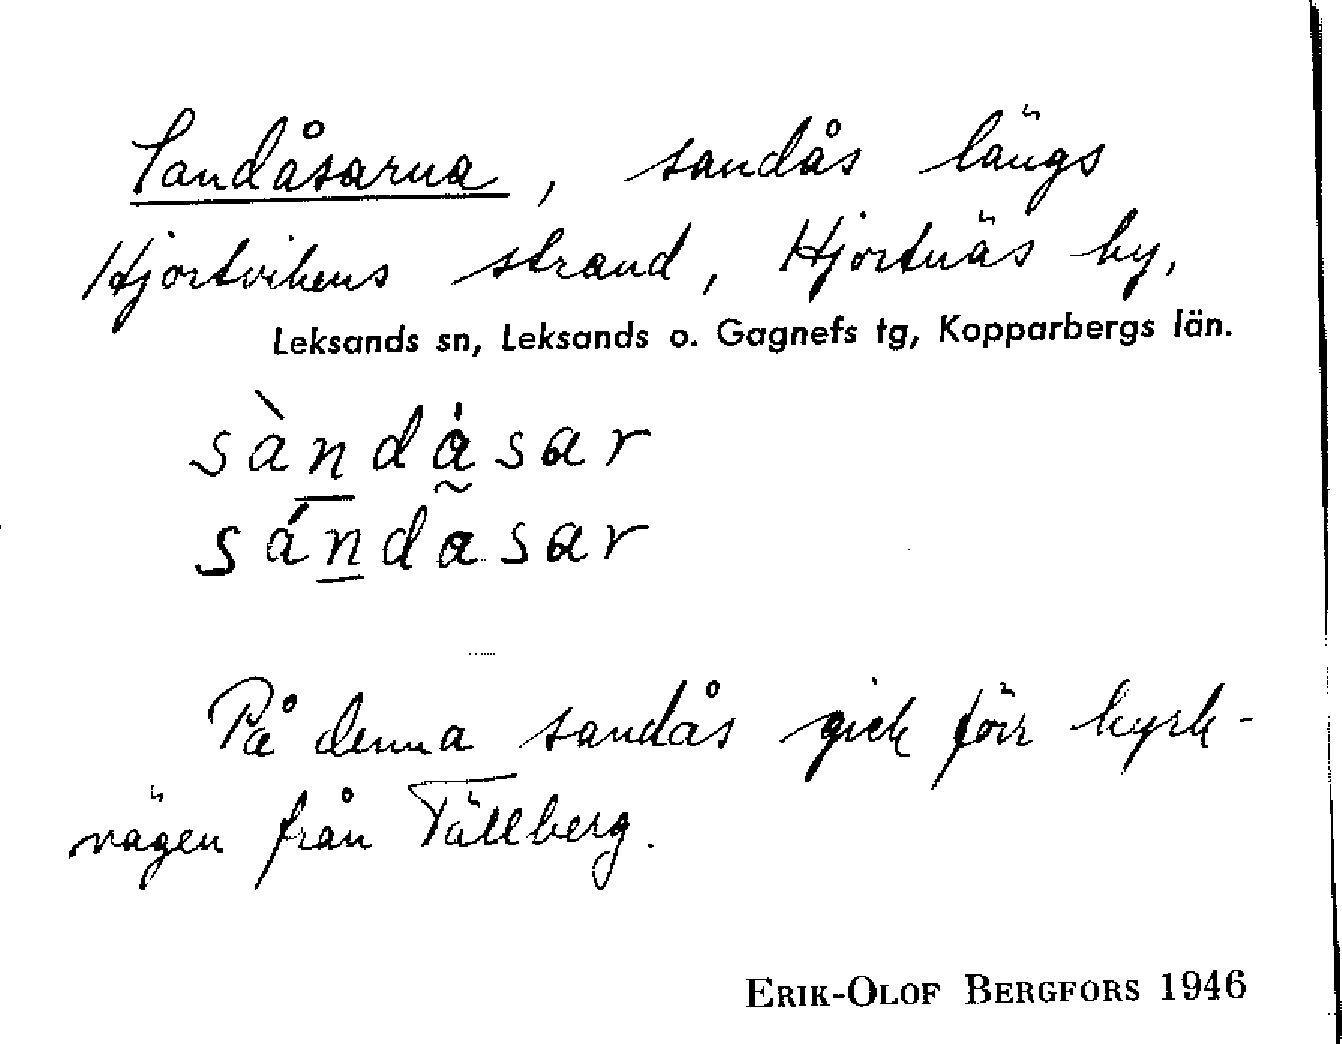 Sandåsarna, sandås längs
Hjortvikens strand, Hjortnäs by,
Leksands sn, Leksands o. Gagnefs tg, Kopparbergs län.
sàn̲då̰sar
sán̲dasar
På denna sandås gick förr kyrk-
vägen från Tällberg.
ERIK-OLOF BERGFORS 1946